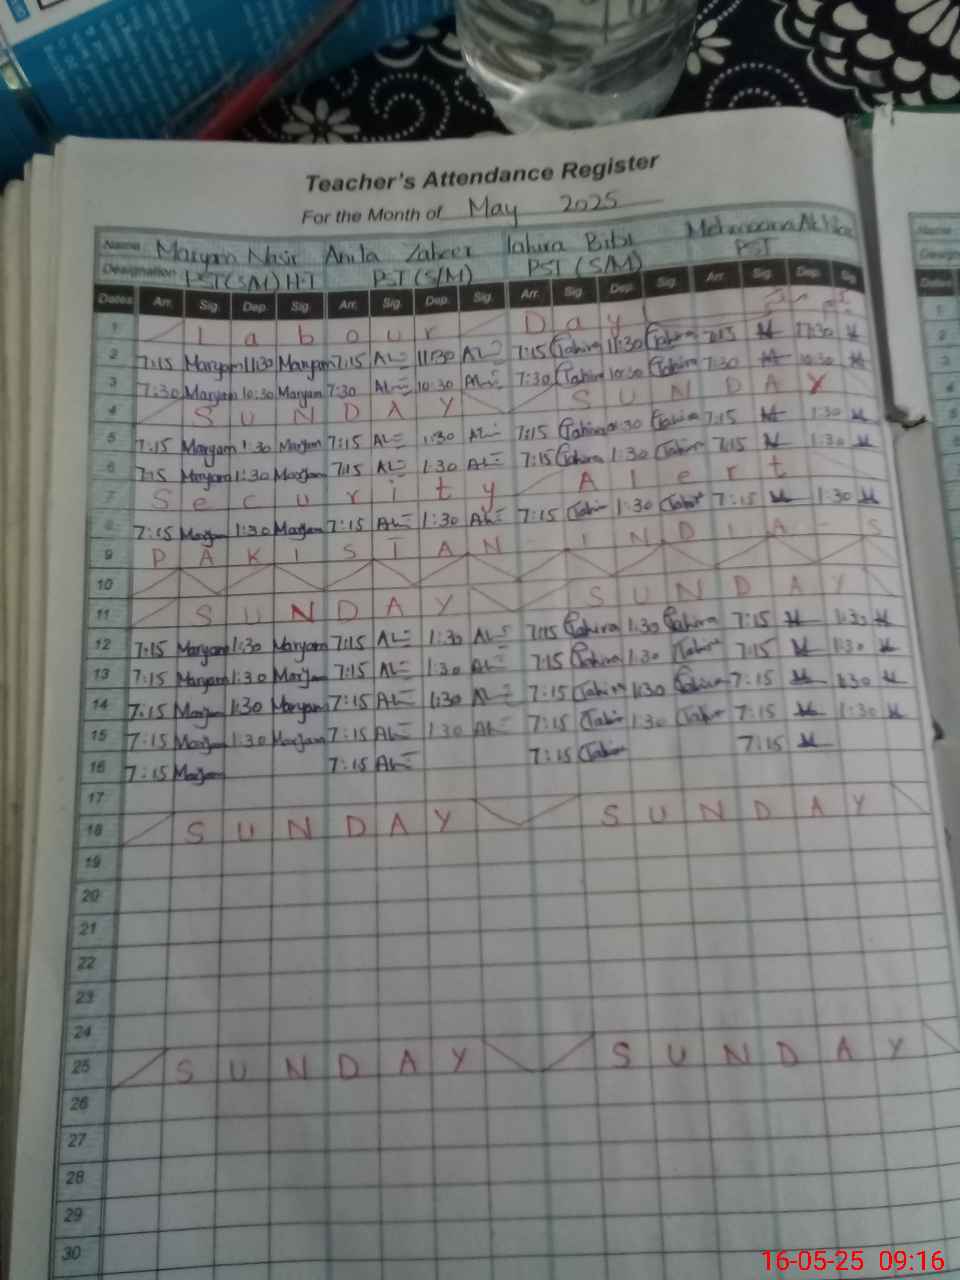 Teacher's Attendance Register
For the Month of May 2025
Name Maryam Nasir Anila Zaheer Tahira Bibi
Designation PST(S/M) H.T PST (S/M) PST (S/M) PST
Dates Arr. Sig. Dep. Sig. Arr. Sig. Dep. Sig. Arr. Sig. Dep. Arr. Sig. Dep. Sig
1 Labour Day
2 7:15 Maryam 11:30 Maryam 7:15 11:30 7:15 Tahira 11:30 Tahira 7:15 11:30
3 7:30 Maryam 10:30 Maryam 7:30 10:30 7:30 Tahira 10:30 Tahira 7:30 10:30
4 SUNDAY SUNDAY
5 7:15 Maryam 1:30 Maryam 7:15 1:30 7:15 Tahira 1:30 Tahira 7:15 1:30
6 7:15 Maryam 1:30 Maryam 7:15 1:30 7:15 Tahira 1:30 Tahira 7:15 1:30
7 Security Alert
8 7:15 Maryam 1:30 Maryam 7:15 1:30 7:15 Tahir 1:30 Tahir 7:15 1:30
9 PAKISTAN INDIA S
10
11 SUNDAY SUNDAY
12 7:15 Maryam 1:30 Maryam 7:15 1:30 7:15 Tahira 1:30 Tahira 7:15 1:30
13 7:15 Maryam 1:30 Maryam 7:15 1:30 7:15 Tahira 1:30 Tahir 7:15 1:30
14 7:15 Maryam 1:30 Maryam 7:15 1:30 7:15 Tahira 1:30 Tahira 7:15 1:30
15 7:15 Maryam 1:30 Maryam 7:15 1:30 7:15 Tahir 1:30 Tahir 7:15 1:30
16 7:15 Maryam 7:15 7:15 Tahir 7:15
17
18 SUNDAY SUNDAY
19
20
21
22
23
24
25 SUNDAY SUNDAY
26
27
28
29
30
16-05-25 09:16